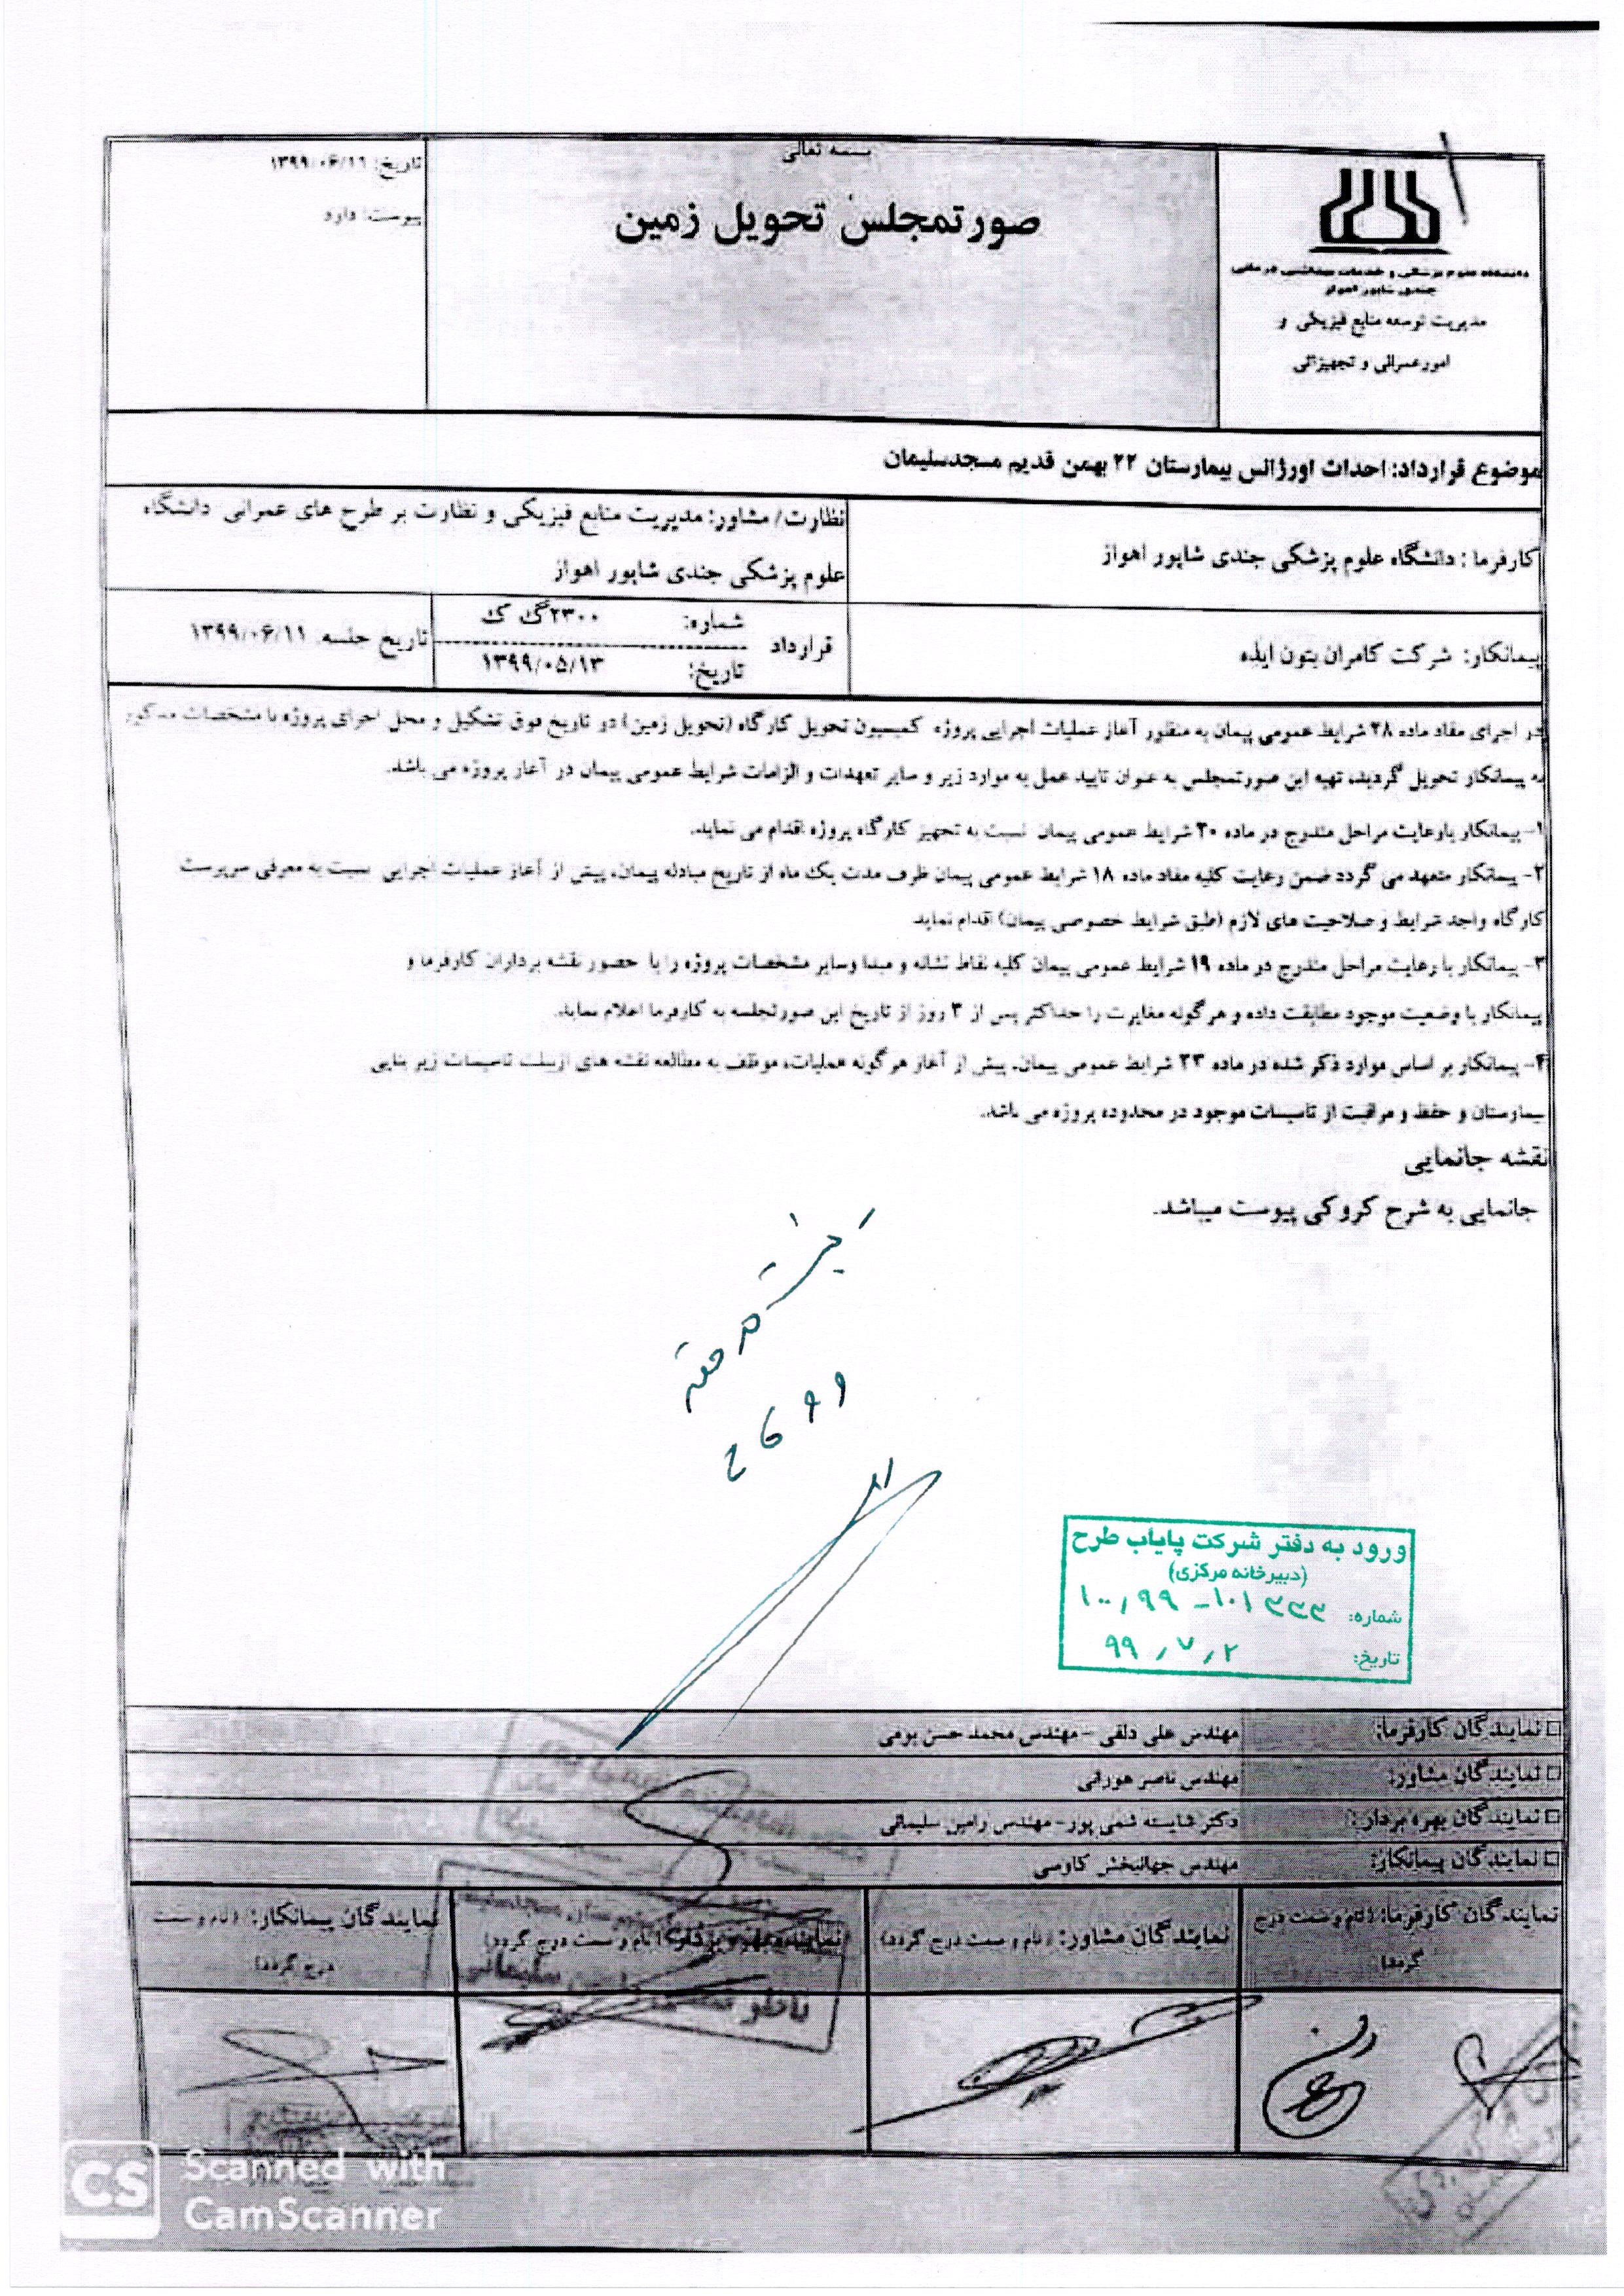 بسمه تعالی
صورتمجلس تحویل زمین
تاریخ: ۱۳۹۹/۰۶/۱۱
پیوست: دارد
دانشگاه علوم پزشکی و خدمات بهداشتی درمانی
جندی شاپور اهواز
مدیریت توسعه منابع فیزیکی و
امور عمرانی و تجهیزاتی
موضوع قرارداد: احداث اورژانس بیمارستان ۲۲ بهمن قدیم مسجدسلیمان
کارفرما : دانشگاه علوم پزشکی جندی شاپور اهواز
نظارت/ مشاور: مدیریت منابع فیزیکی و نظارت بر طرح های عمرانی دانشگاه
علوم پزشکی جندی شاپور اهواز
پیمانکار: شرکت کامران بتون ایذه
قرارداد
شماره: ۲۳۰۰گ ک
تاریخ: ۱۳۹۹/۰۵/۱۳
تاریخ جلسه: ۱۳۹۹/۰۶/۱۱
در اجرای مفاد ماده ۲۸ شرایط عمومی پیمان به منظور آغاز عملیات اجرایی پروژه کمیسیون تحویل کارگاه (تحویل زمین) در تاریخ فوق تشکیل و محل اجرای پروژه با مشخصات مذکور
به پیمانکار تحویل گردید، تهیه این صورتمجلس به عنوان تایید عمل به موارد زیر و سایر تعهدات و الزامات شرایط عمومی پیمان در آغاز پروژه می باشد.
۱- پیمانکار بارعایت مراحل مندرج در ماده ۳۰ شرایط عمومی پیمان نسبت به تجهیز کارگاه پروژه اقدام می نماید.
۲- پیمانکار متعهد می گردد ضمن رعایت کلیه مفاد ماده ۱۸ شرایط عمومی پیمان ظرف مدت یک ماه از تاریخ مبادله پیمان، پیش از آغاز عملیات اجرایی نسبت به معرفی سرپرست
کارگاه واجد شرایط و صلاحیت های لازم (طبق شرایط خصوصی پیمان) اقدام نماید
۳- پیمانکار با رعایت مراحل مندرج در ماده ۱۹ شرایط عمومی پیمان کلیه نقاط نشانه و مبدا وسایر مشخصات پروژه را با حضور نقشه برداران کارفرما و
پیمانکار با وضعیت موجود مطابقت داده و هرگونه مغایرت را حداکثر پس از ۳ روز از تاریخ این صورتجلسه به کارفرما اعلام نماید.
۴- پیمانکار بر اساس موارد ذکر شده در ماده ۲۳ شرایط عمومی پیمان، پیش از آغاز هرگونه عملیات، موظف به مطالعه نقشه های ازبیلت تاسیسات زیر بنایی
بیمارستان و حفظ و مراقبت از تاسیسات موجود در محدوده پروژه می باشد.
نقشه جانمایی
جانمایی به شرح کروکی پیوست میباشد.
ورود به دفتر شرکت پایاب طرح
(دبیرخانه مرکزی)
شماره: ۱۰۰٫۹۹-۱۰۱۳۳۳
تاریخ: ۹۹٫۷٫۲
نمایندگان کارفرما: مهندس علی دلفی - مهندس محمد حسن بومی
نمایندگان مشاور: مهندس ناصر هورانی
نمایندگان بهره بردار: دکتر شایسته شمی پور- مهندس رامین سلیمانی
نمایندگان پیمانکار: مهندس جهانبخش کاوسی
نمایندگان کارفرما: (نام و سمت درج
گردد)
نمایندگان مشاور: (نام و سمت درج گردد)
نماینده بهره بردار: (نام و سمت درج گردد)
نمایندگان پیمانکار: (نام و سمت
درج گردد)
Scanned with
CS CamScanner